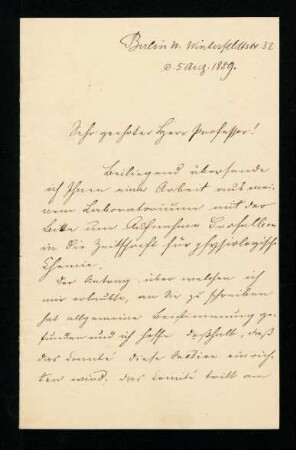 Berlin W. Winterfeldtstr 32
d. 5 Aug. 1889.
Sehr geehrter Herr Professor!
Beiliegend übersende
ich Ihnen eine Arbeit aus mei-
nem Laboratorium mit der
Bitte um Aufnahme derselben
in die Zeitschrift für physiologische
Chemie.
Der Antrag, über welchen ich
mir erlaubte, an Sie zu schreiben
hat allgemeine Beistimmung ge-
funden und ich hoffe deßhalb, daß
das Comité diese Section einrich-
ten wird. das Comité tritt am